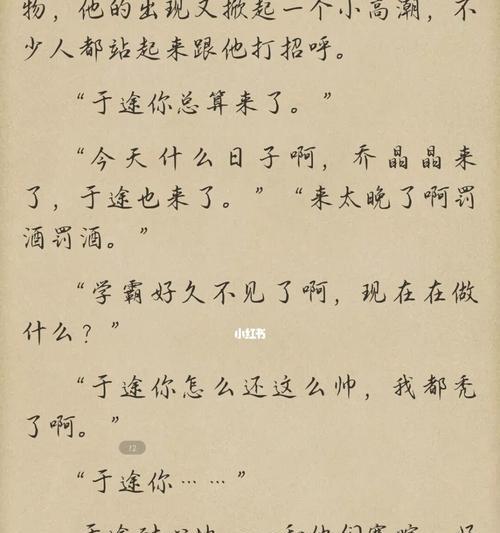 物，他的出现又掀起一个小高潮，不
少人都站起来跟他打招呼。
“于途你总算来了。”
“今天什么日子啊，乔晶晶来
了，于途也来了。”“来太晚了啊罚
酒罚酒。”
“学霸好久不见了啊，现在在做
什么？”
小红书
“于途你怎么还这么帅，我都秃
了啊。”
12
“于途你……”